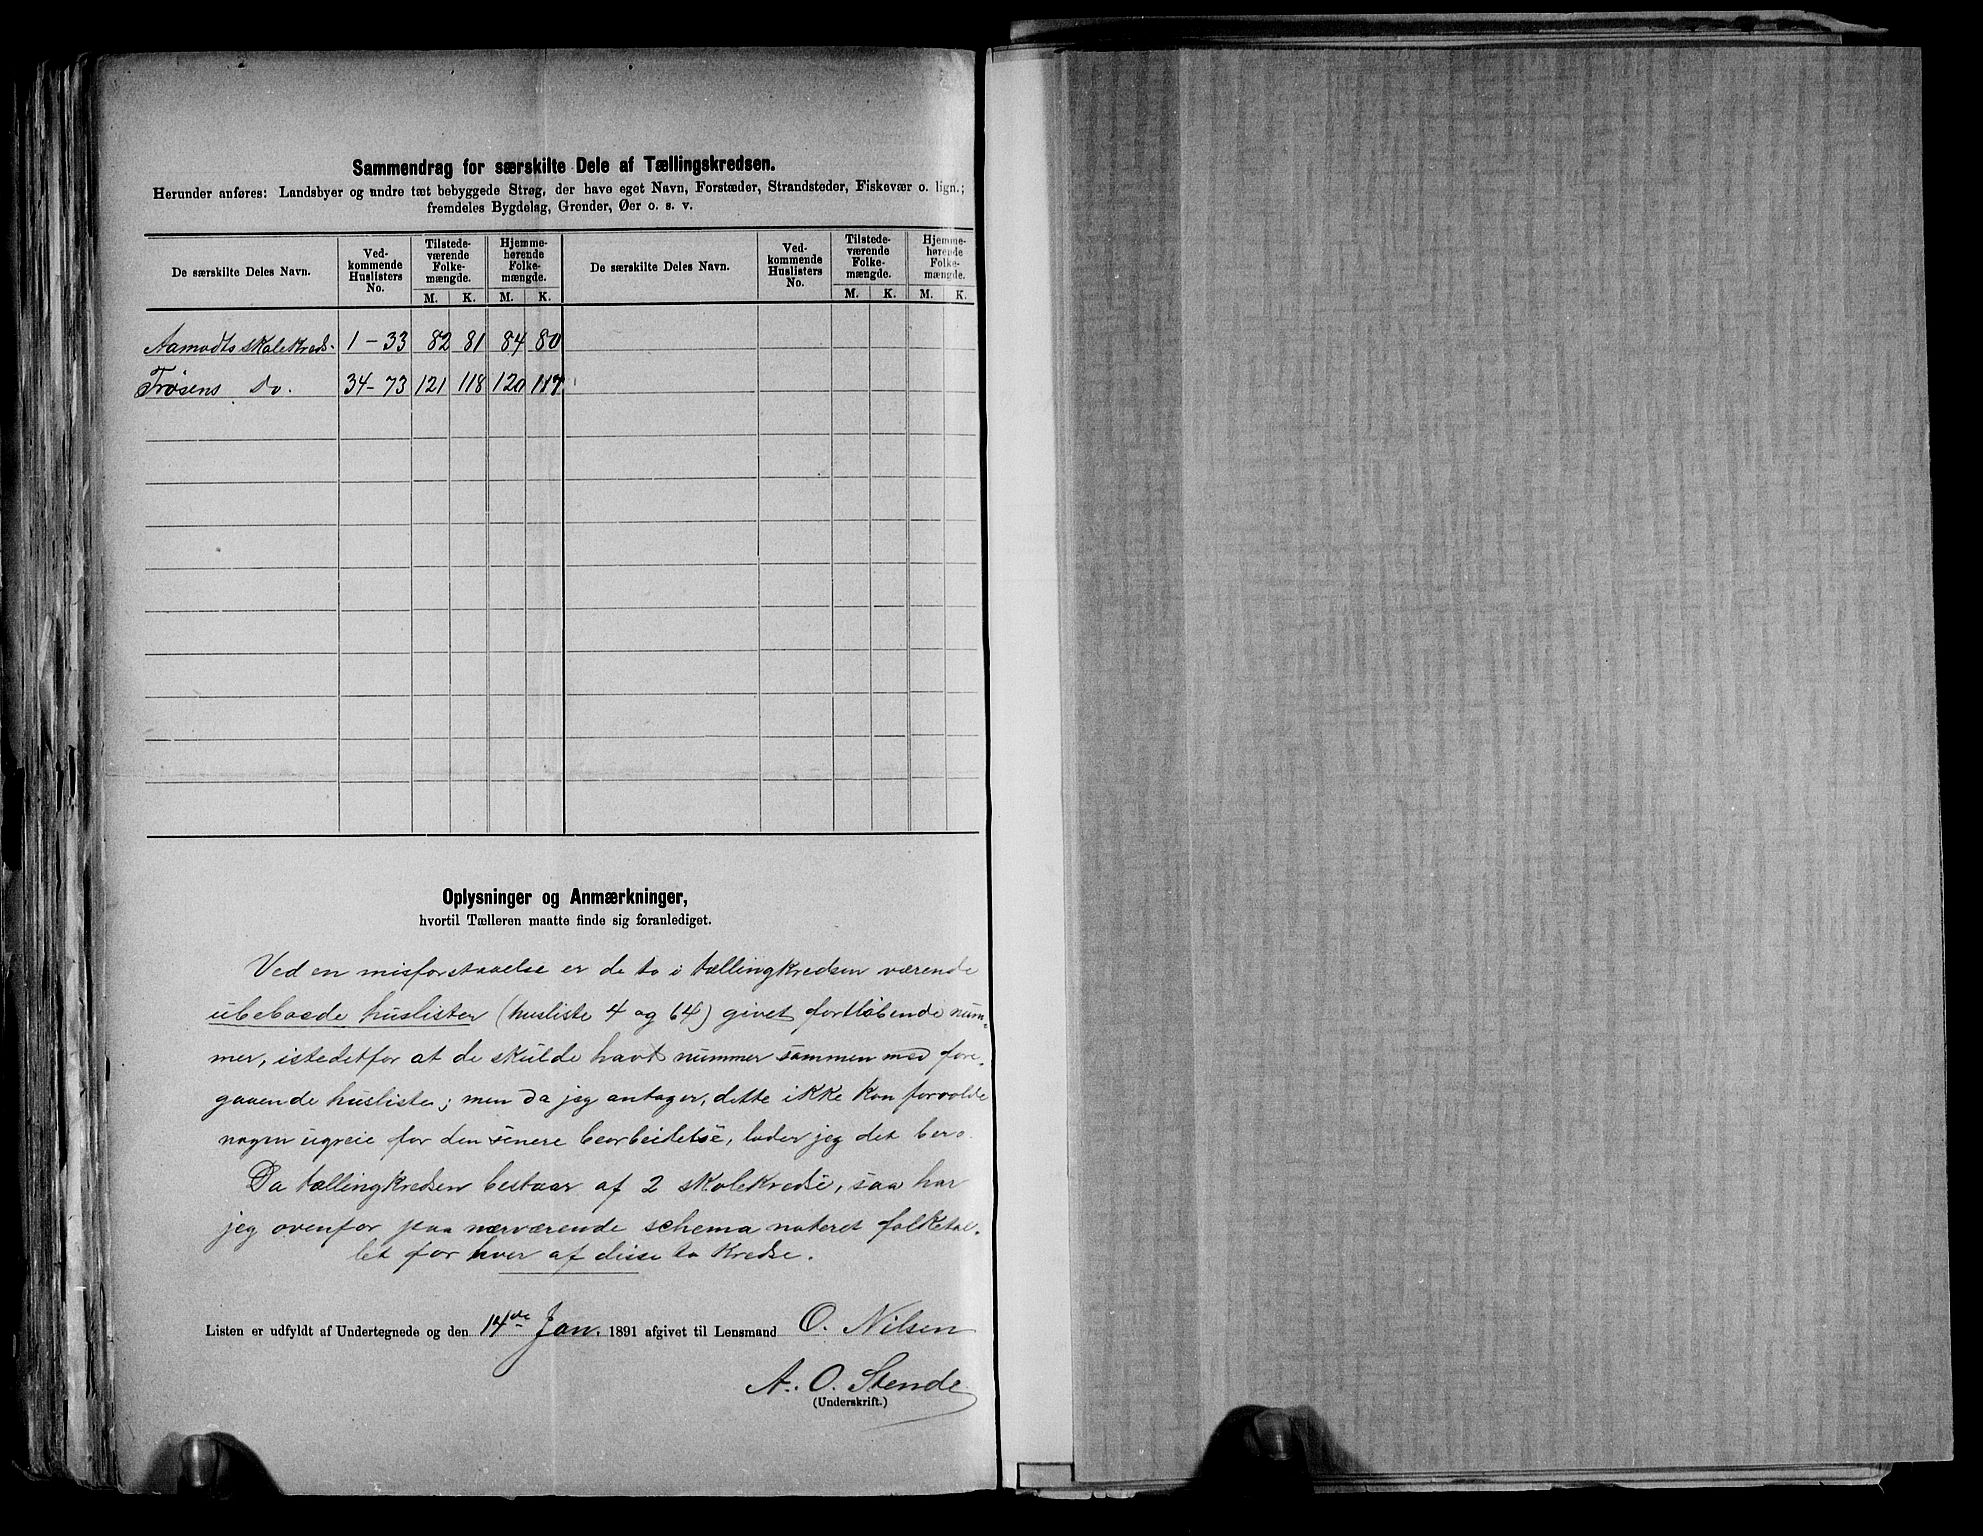 Sammendrag for særskilte Dele af Tællingskredsen.
Herunder anføres: Landsbyer og andre tæt bebyggede Strøg, der have eget Navn, Forstæder, Strandsteder, Fiskevær o. lign.;
fremdeles Bygdelag, Grender, Øer o. s. v.
De særskilte Deles Navn. Ved-kommende Huslisters No. Tilstede-værende Folke-mængde. Hjemme-hørende Folke-mængde. De særskilte Deles Navn. Ved-kommende Huslisters No. Tilstede-værende Folke-mængde. Hjemme-hørende Folke-mængde.
M. K. M. K. M. K. M. K.
Aamodts skolekreds. 1 - 33 82 81 84 80
Trøsens Do. 34 - 73 121 118 120
Oplysninger og Anmærkninger,
hvortil Tælleren maatte finde sig foranlediget.
Ved en misforstaaelse er de to i tællingkredsen værende
ubeboede huslister (husliste 4 og 64) givet fortløbende num-
mer, istedetfor at de skulde havt nummer sammen med fore-
gaaende husliste; men da jeg antager, dette ikke kan forvolde
nogen ugreie for den senere bearbeidelse, lader jeg det bero.
Da tællingkredsen bestaar af 2 skolekredse, saa har
jeg ovenfor paa nærværende schema noteret folketal-
let for hver af disse to kredse.
Listen er udfyldt af Undertegnede og den 14de Jan. 1891 afgivet til Lensmand O. Nilsen
A. O. Stende
(Underskrift.)